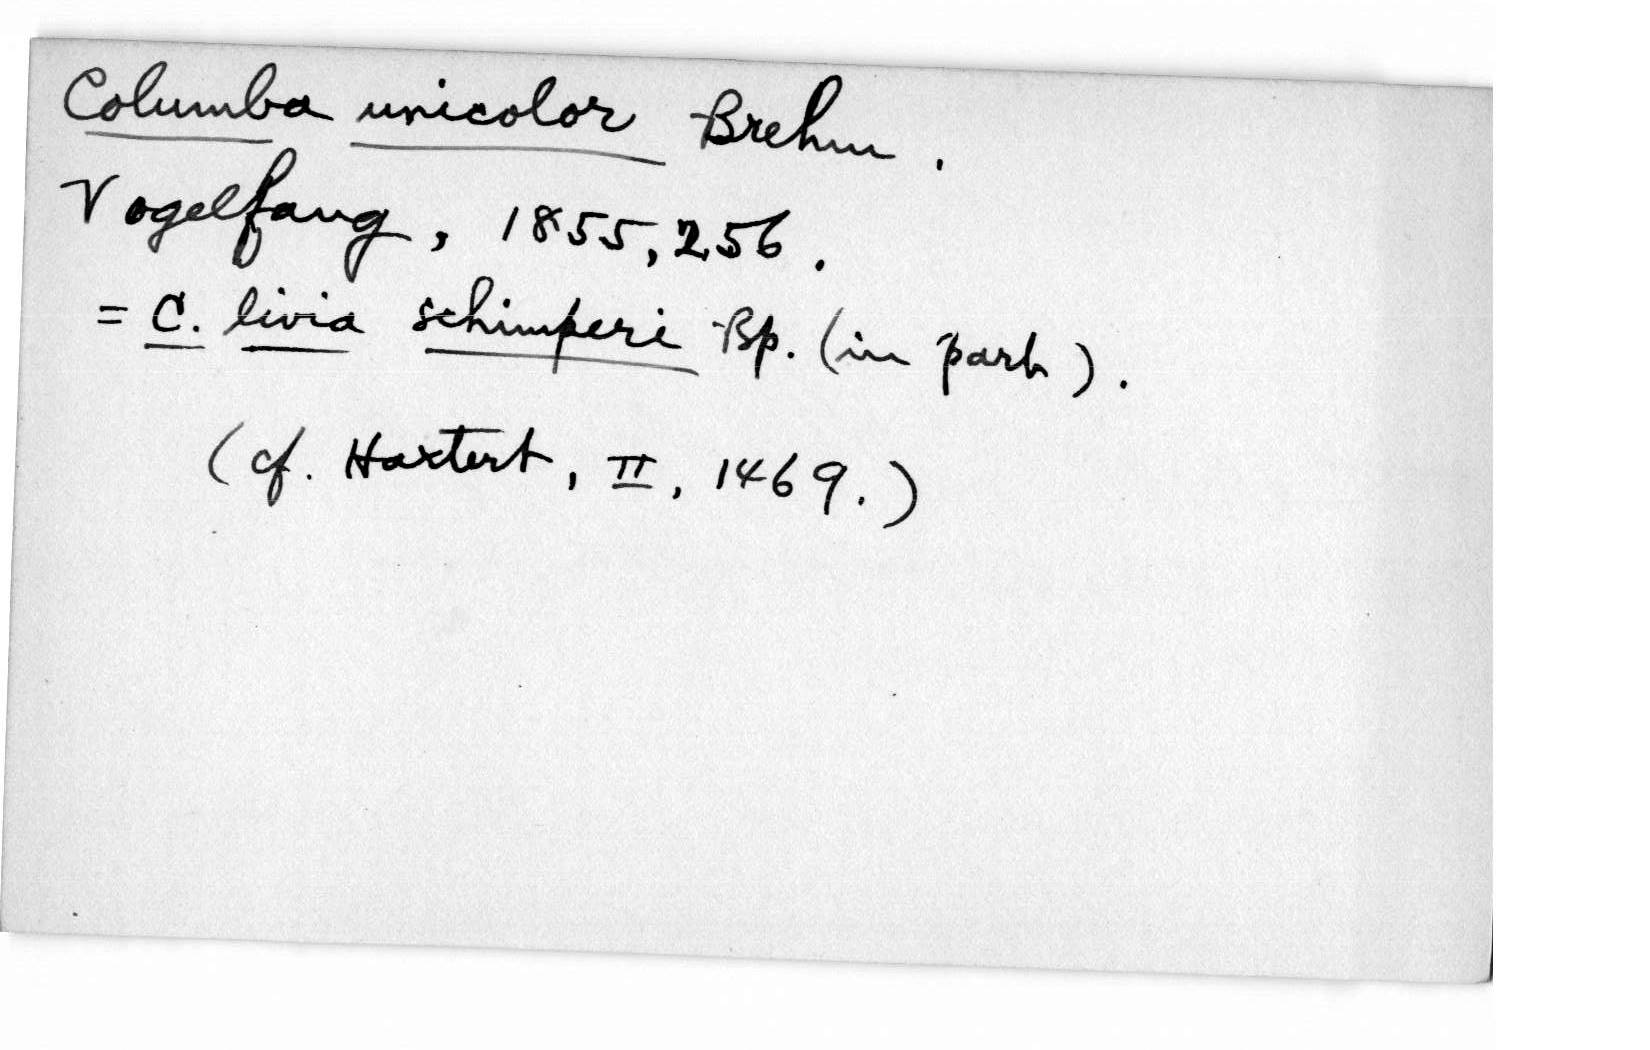 Columba unicolor Brehm.
Vogelfang, 1855, 256.
= C. livia schimperi Bp. (in part).
(cf. Hartert, II, 1469.)